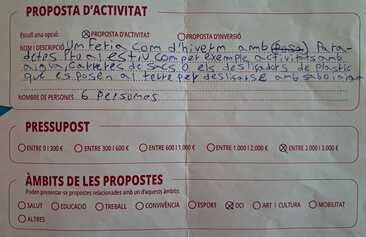 PROPOSTA D'ACTIVITAT
Escull una opció: PROPOSTA D'ACTIVITAT PROPOSTA D'INVERSIÓ
NOM I DESCRIPCIÓ Un fetia com d'hivern amb Para-
detes pro al estiu com per exemple activitats amb
aigua, Carretes de sacs O els deslisadors de plastic
que es posen al terre per deslisarse amb sabo i aigua
NOMBRE DE PERSONES 6 Persones
PRESSUPOST
ENTRE 0 I 300 € ENTRE 300 I 600 € ENTRE 600 I 1.000 € ENTRE 1.000 I 2.000 € ENTRE 2.000 I 3.000 €
ÀMBITS DE LES PROPOSTES
Poden presentar-se propostes relacionades amb un d'aquests àmbits:
SALUT EDUCACIÓ TREBALL CONVIVÈNCIA ESPORT OCI ART I CULTURA MOBILITAT
ALTRES